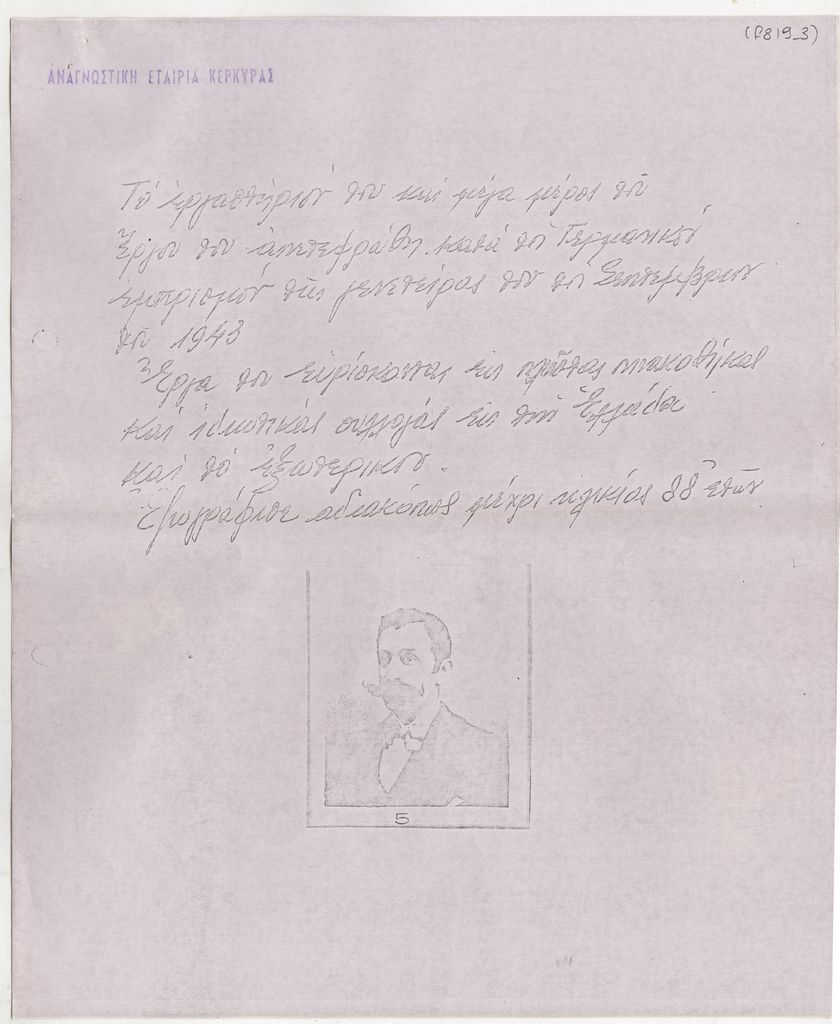 (P819_3)
ΑΝΑΓΝΩΣΤΙΚΗ ΕΤΑΙΡΙΑ ΚΕΡΚΥΡΑΣ
Τό ἐργαστήριόν του καί μέγα μέρος τοῦ
Ἔργου του ἀπετεφρώθη κατά τόν Γερμανικό
ἐμπρισμόν τῆς γενετείρας του τόν Σεπτεμβριον
τοῦ 1943
Ἔργα του εὑρίσκονται εἰς πινακοθήκας
καί ἰδιωτικάς συλλογάς εἰς τήν Ἑλλάδα
καί τό ἐξωτερικόν.
Ἐζωγράφισε αδιακόπως μέχρι ηλικίας 88 ἐτῶν
5